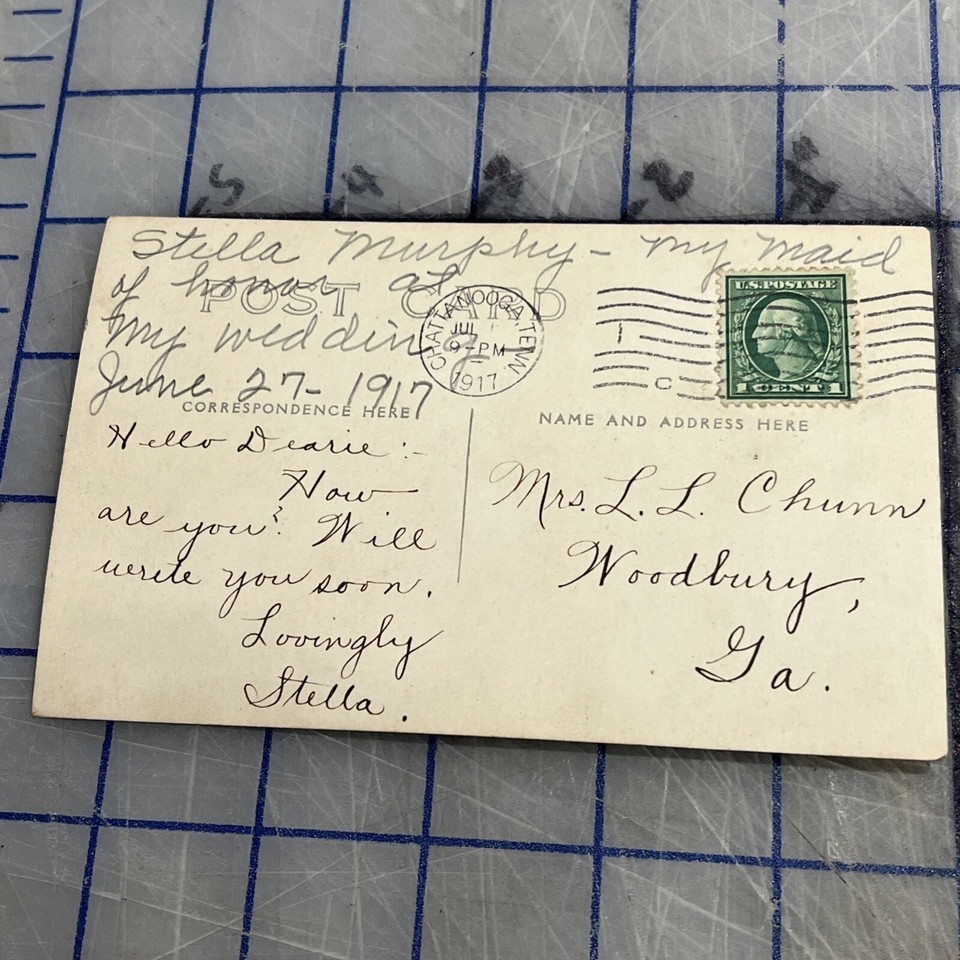 Stella Murphy - My Maid
of honor at
POST CARD
My wedding
June 27 - 1917
CORRESPONDENCE HERE
Hello Dearie :-
How
are you? Will
write you soon.
Lovingly
Stella.
CHATTANOOGA, TENN
JUL
9-PM
1917
U.S. POSTAGE
1 CENT 1
NAME AND ADDRESS HERE
Mrs. L. L. Chunn
Woodbury,
Ga.